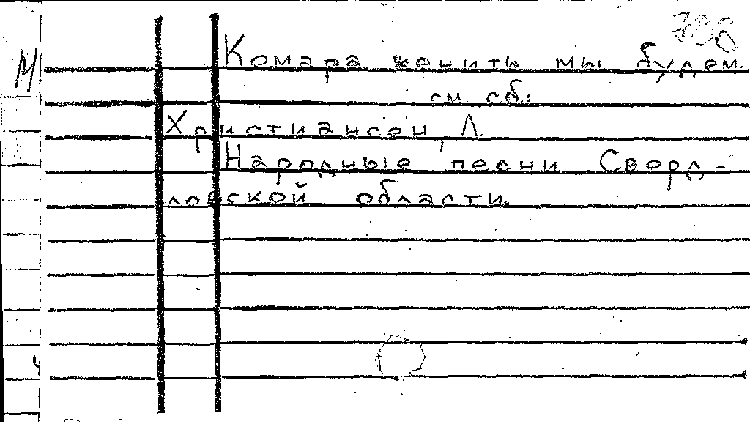 Комара женить мы будем
см. сб.:
Христиансен, Л.
Народные песни Сверд-
ловской области.